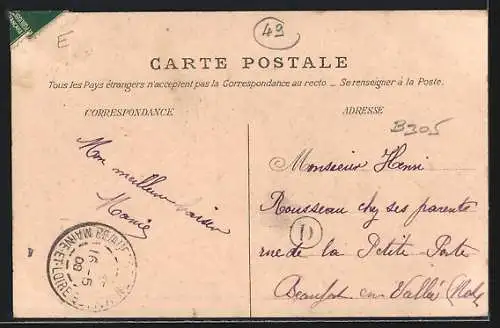 E
49
CARTE POSTALE
Tous les Pays étrangers n'acceptent pas la Correspondance au recto _ Se renseigner à la Poste.
CORRESPONDANCE
Mon meilleur baiser
Marie
MAINE-ET-LOIRE
16-5
09
ADRESSE
B305
Monsieur Henri
Rousseau chez ses parents
rue de la Petite Porte
D
Beaufort en Vallée